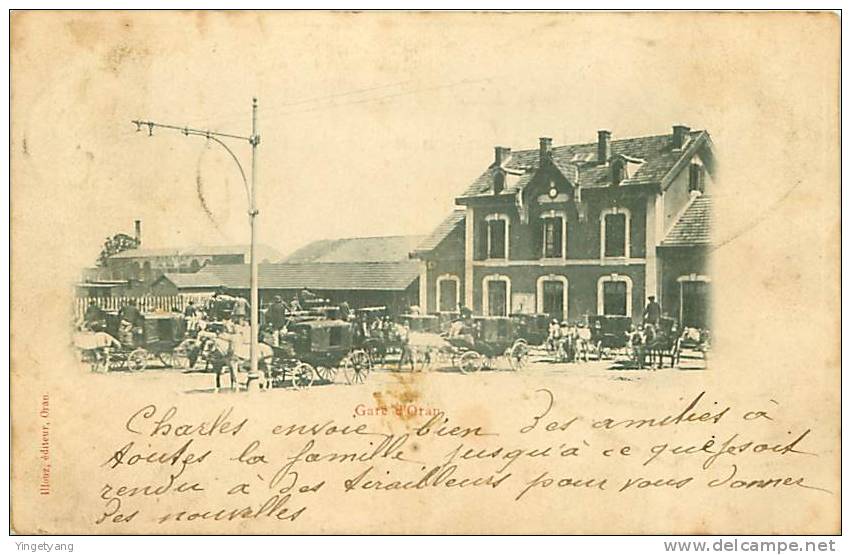 Gare d'Oran
Charles envoie bien des amitiés à
toutes la famille jusqu'à ce qu'ilsoit
rendu à des tirailleurs pour vous donner
des nouvelles
éditeur, Oran.
Yingetyang
www.delcampe.net